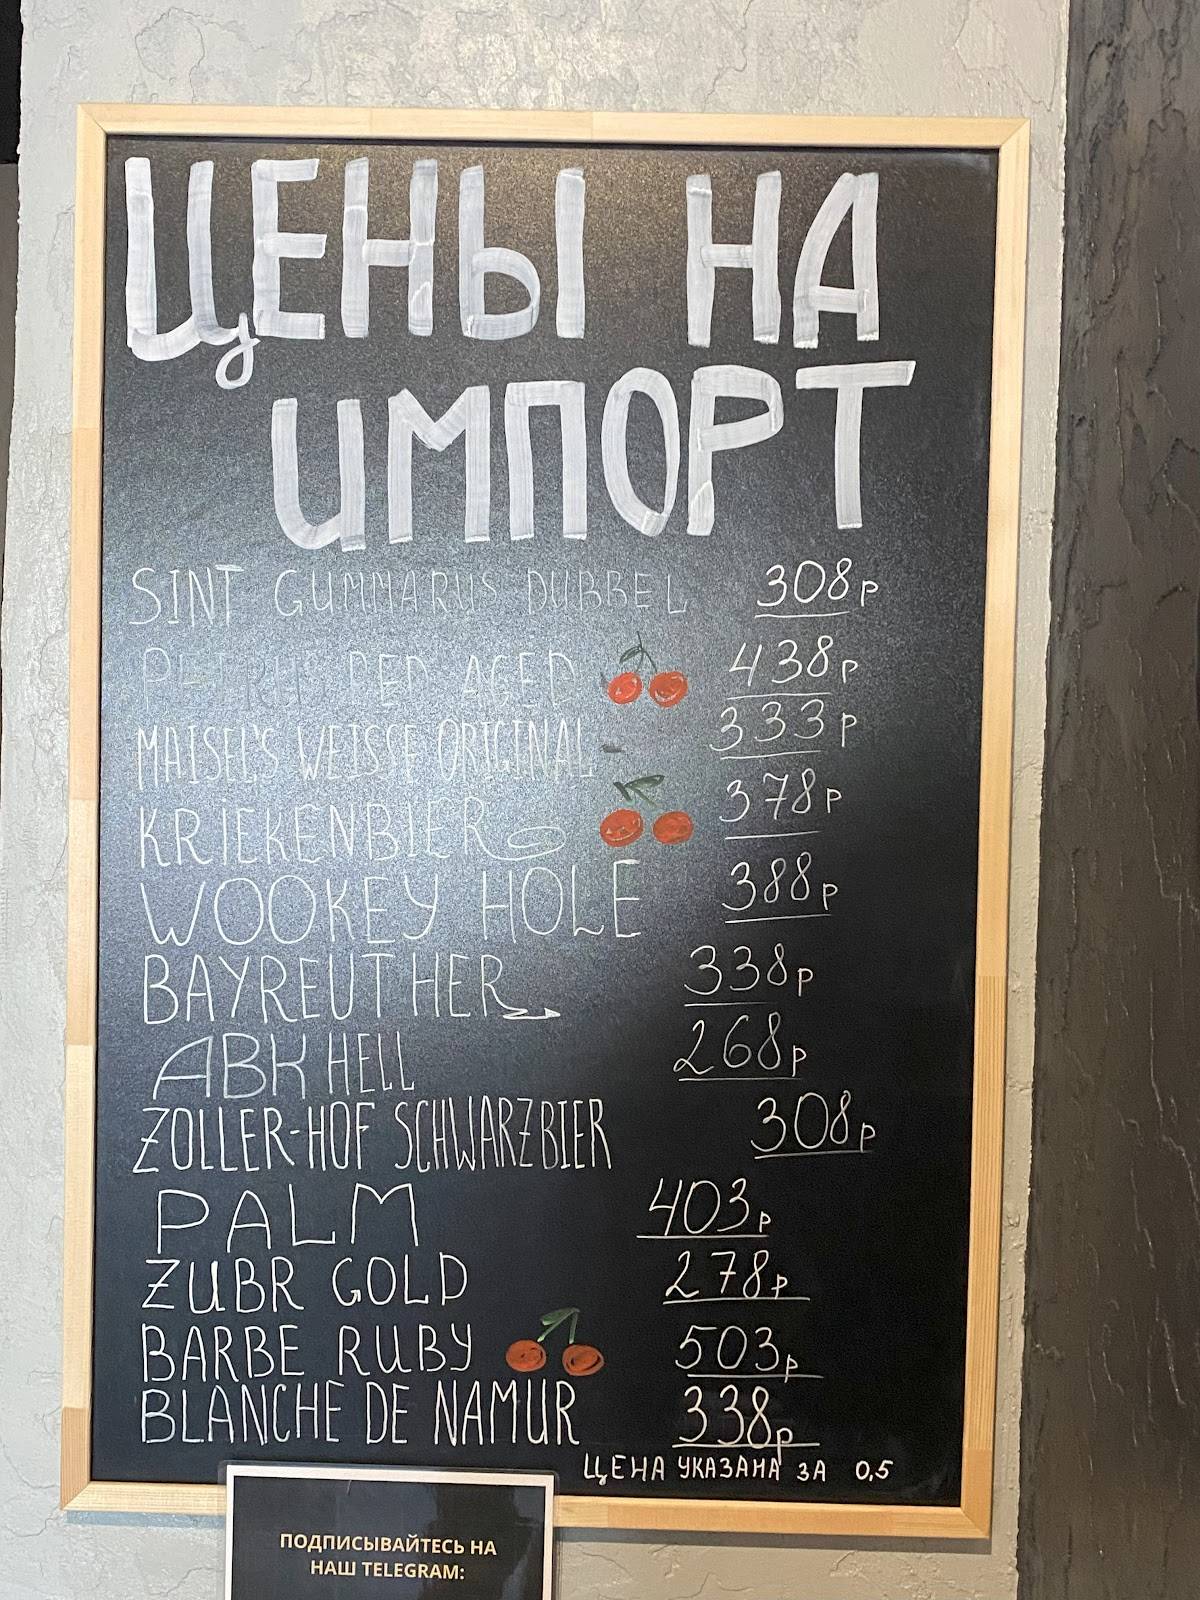 ЦЕНЫ НА
ИМПОРТ
SINT GUMMARUS DUBBEL 308р
RED AGED 438р
MAISEL'S WEISSE ORIGINAL - 333р
KRIEKENBIER 378р
WOOKEY HOLE 388р
BAYREUTHER 338р
ABK HELL 268р
ZOLLER-HOF SCHWARZBIER 308р
PALM 403р
ZUBR GOLD 278р
BARBE RUBY 503р
BLANCHE DE NAMUR 338р
ЦЕНА УКАЗАНА ЗА 0,5
ПОДПИСЫВАЙТЕСЬ НА
НАШ TELEGRAM: